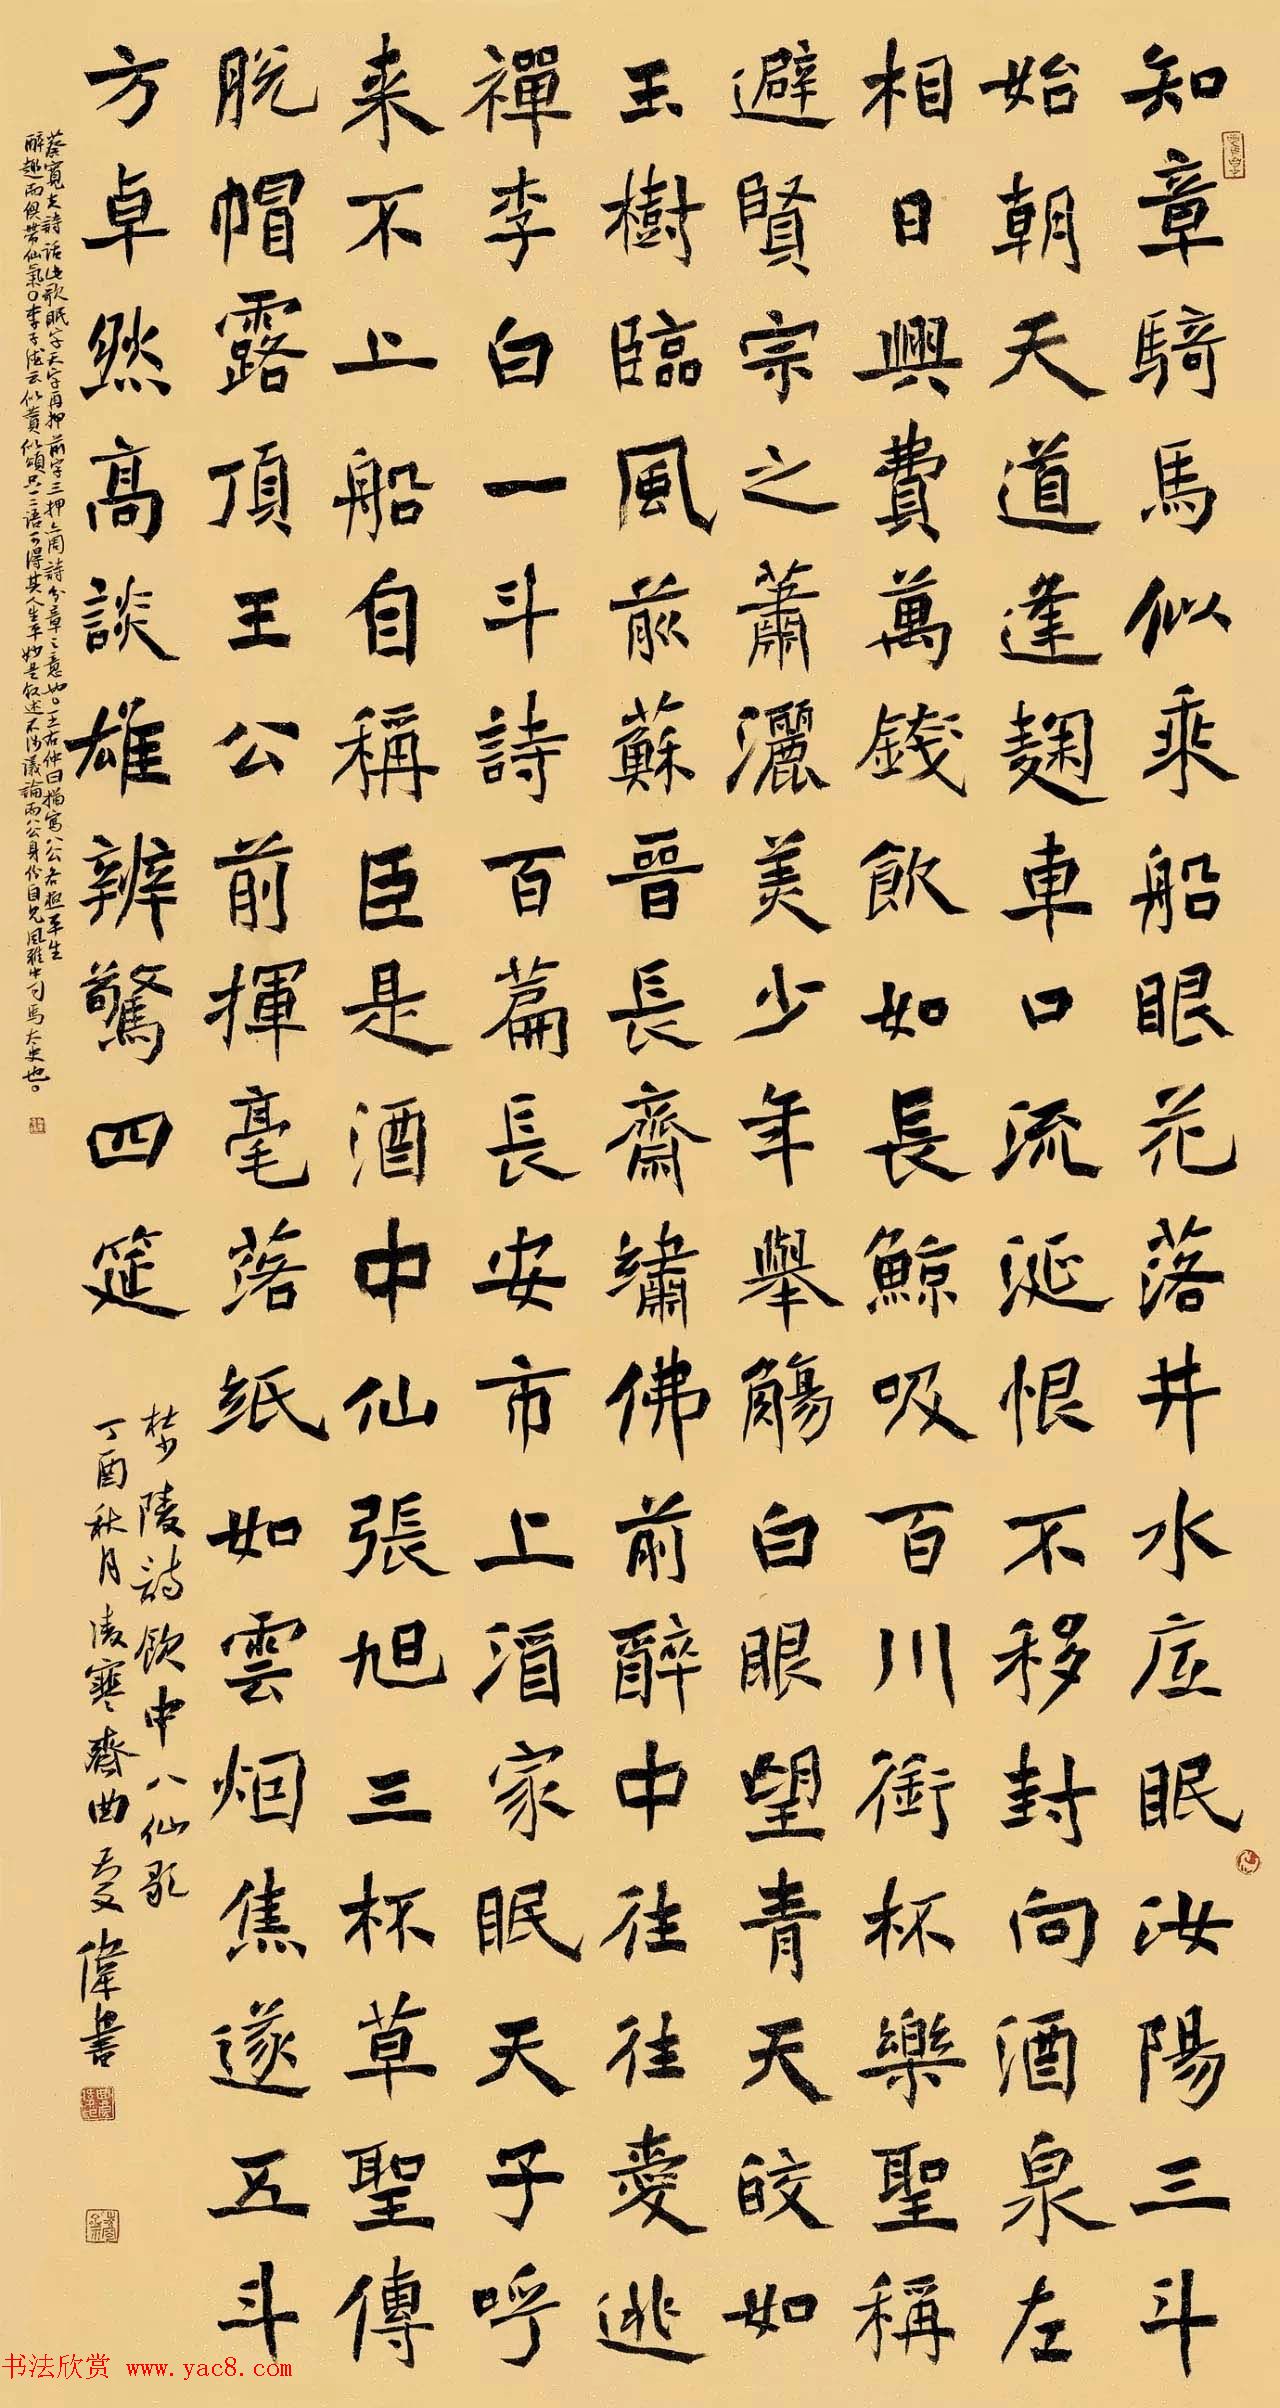 知章騎馬似乘船眼花落井水底眠汝陽三斗
始朝天道逢麹車口流涎恨不移封向酒泉左
相日興費萬錢飲如長鯨吸百川銜杯樂聖稱
避賢宗之蕭灑美少年舉觴白眼望青天皎如
玉樹臨風前蘇晉長齋繡佛前醉中往往愛逃
禪李白一斗詩百篇長安市上酒家眠天子呼
来不上船自稱臣是酒中仙張旭三杯草聖傳
脱帽露頂王公前揮毫落紙如雲烟焦遂五斗
方卓然高談雄辨驚四筵
杜少陵詩飲中八仙歌
丁酉秋月凌寒齋曲慶偉書
蔡寬夫詩話此歌眠字天字再押前字三押亦周詩分章之意也。王右仲曰描寫八公各極平生
醉趣而俱帶仙氣。李子德云似贊似頌只一二語可得其人生平妙是叙述不涉議論而八公身份自見風雅中司馬太史也。
书法欣赏 www.yac8.com